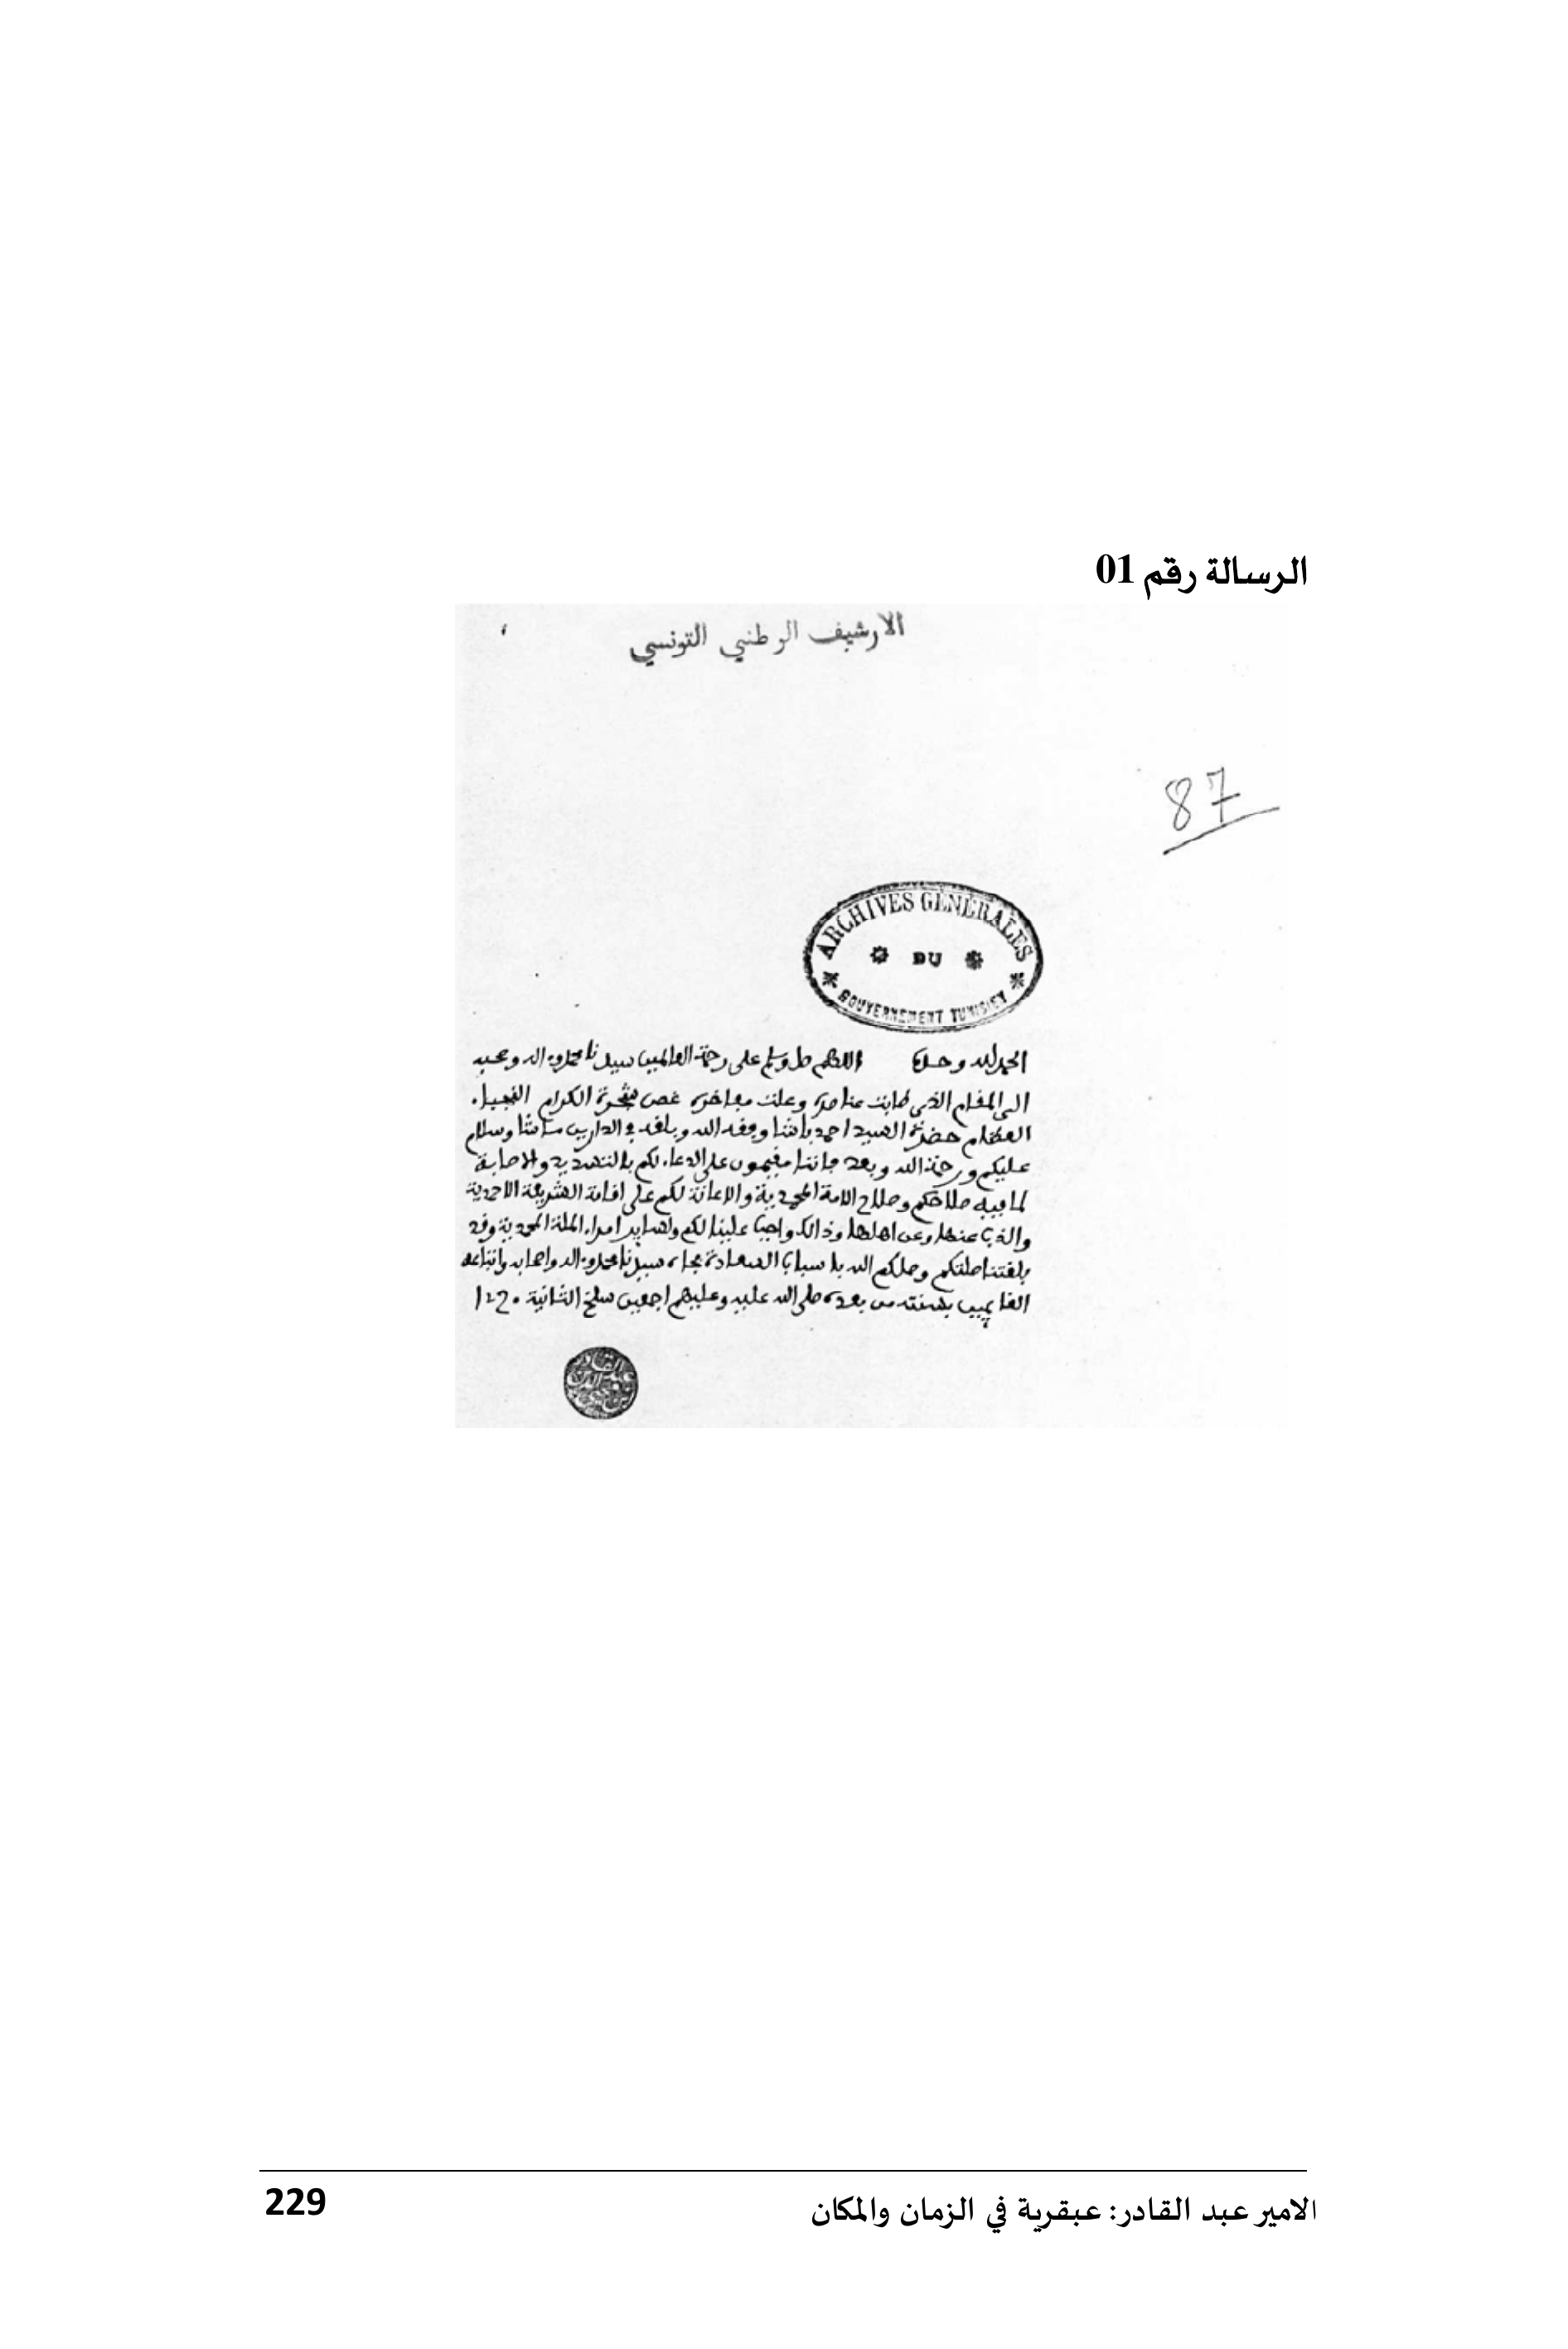 الرسالة رقم 01
الارشيف الوطني التونسي
87
ARCHIVES GÉNÉRALES
DU
GOUVERNEMENT TUNISIEN
الحمد لله وحده اللهم صل وسلم على رحمة العالمين سيدنا محمد وءاله وصحبه
الى المقام الذى طابت عناصره وعلت مفاخره غصن شجرة الكرام النجباء
العظام حضرة السيد احمد باشا وفقه الله وبلغه في الدارين ما شا وسلام
عليكم ورحمة الله وبعد فاننا مقيمون على الدعاء لكم بالتسديد والاصابة
لما فيه صلاحكم وصلاح الامة المحمدية والاعانة لكم على اقامة الشريعة الاحمدية
والذب عنها وعن اهلها وذالك واجب علينا لكم ولساير امراء الملة المحمدية وقد
بلغتنا صلتكم وصلكم الله باسباب السعادة بجاه سيدنا محمد وءاله واصحابه واتباعه
القايمين بسنته من بعده صلى الله عليه وعليهم اجمعين سلخ الثانية
الامير عبد القادر: عبقرية في الزمان والمكان
229